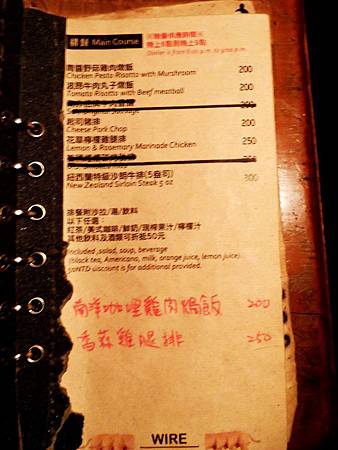 精餐 Main Course
※晚餐供應時間※
晚上6點到晚上9點
Dinner is from 6:00 p.m. to 9:00 p.m.
青醬野菇雞肉燉飯
Chicken Pesto Risotto with Murshroom 200
波隆牛肉丸子燉飯
Tomato Risotto with Beef meatball 200
200
起司豬排
Cheese Pork Chop 200
花草檸檬雞腿排 250
Lemon & Rosemary Marinade Chicken
350
紐西蘭特級沙朗牛排(5盎司) 300
New Zealand Sirloin Steak 5 oz
排餐附沙拉/湯/飲料
以下任選：
紅茶/美式咖啡/鮮奶/現榨果汁/檸檬汁
其他飲料及酒類可折抵50元
Included ,salad, soup, beverage
(black tea, Americano, milk, orange juice, lemon juice)
50NTD discount is for additional provided.
南洋咖哩雞肉焗飯 200
香蒜雞腿排 250
WIRE